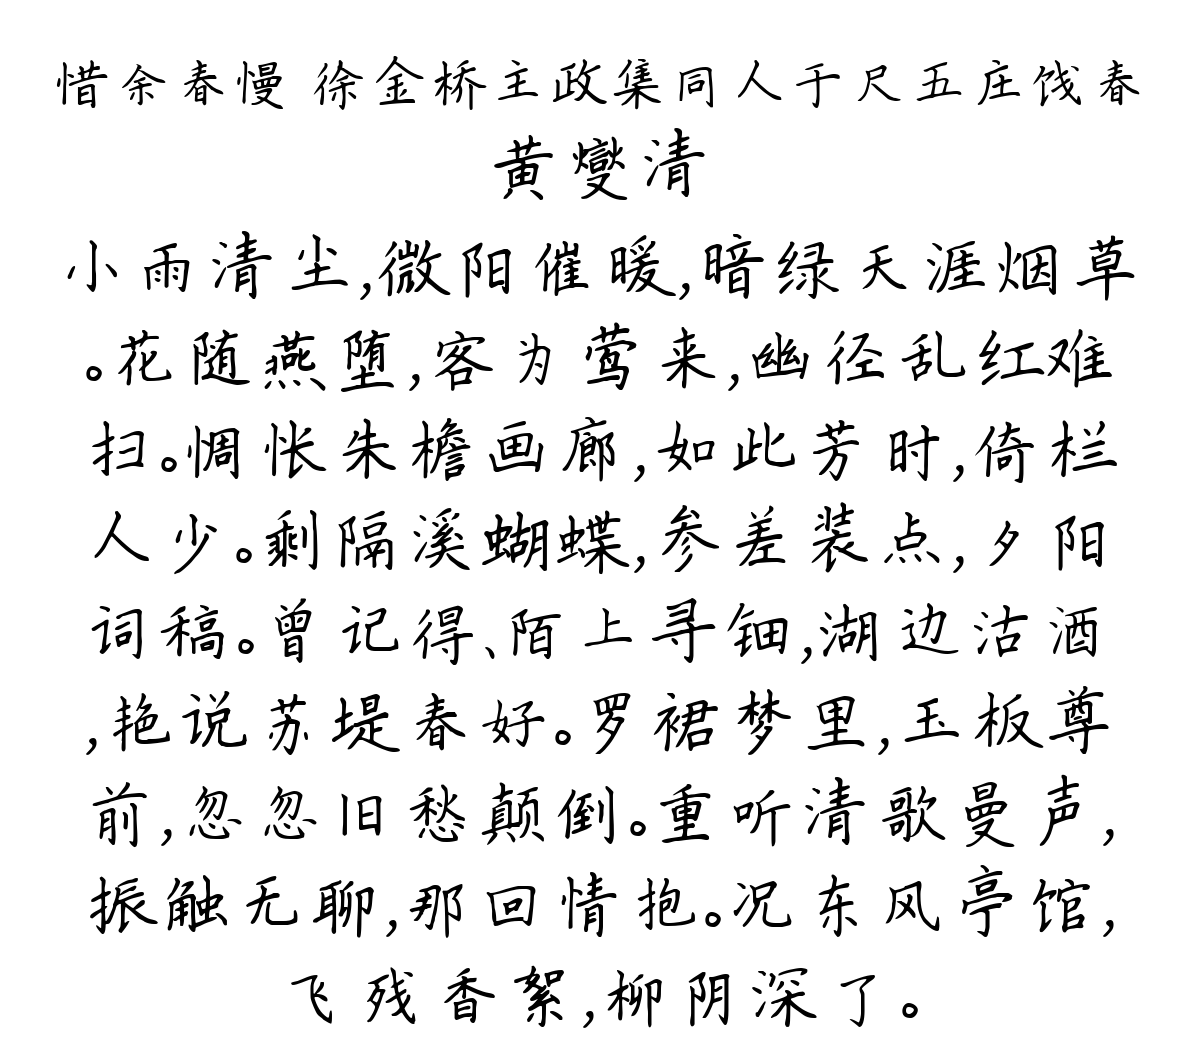 惜余春慢 徐金桥主政集同人于尺五庄饯春
黄燮清
小雨清尘,微阳催暖,暗绿天涯烟草
。花随燕堕,客为莺来,幽径乱红难
扫。惆怅朱檐画廊,如此芳时,倚栏
人少。剩隔溪蝴蝶,参差装点,夕阳
词稿。曾记得、陌上寻钿,湖边沽酒
,艳说苏堤春好。罗裙梦里,玉板尊
前,忽忽旧愁颠倒。重听清歌曼声,
振触无聊,那回情抱。况东风亭馆,
飞残香絮,柳阴深了。